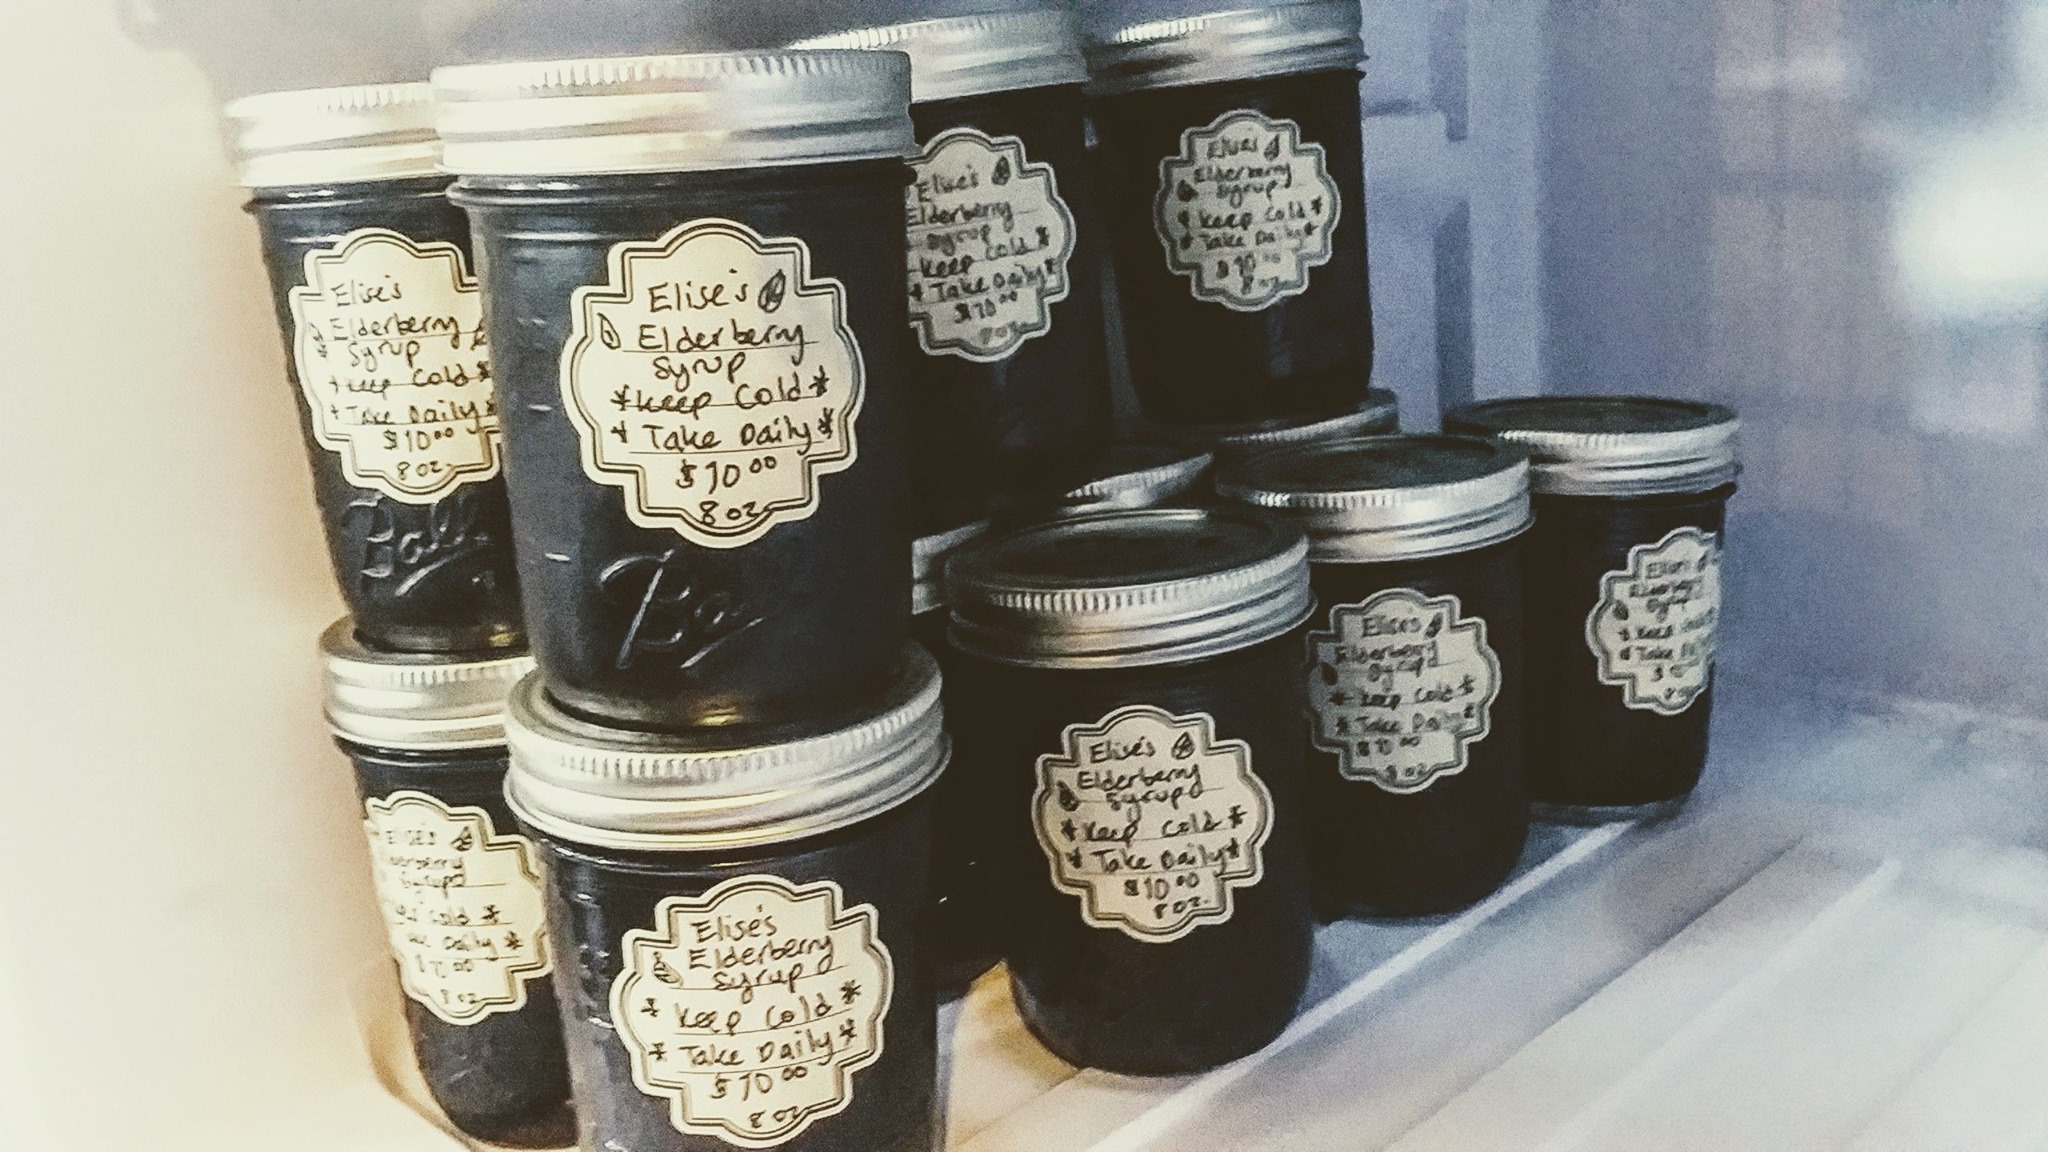 Elise's
Elderberry
Syrup
*keep Cold*
* Take Daily*
$10.00
8 oz.
Ball
Elise's
Elderberry
Syrup
*keep Cold*
* Take Daily*
$10.00
8 oz.
Elise's
Elderberry
Syrup
keep Cold*
* Take Daily*
$10.00
8 oz.
Elise's
Elderberry
Syrup
* keep Cold*
* Take Daily*
$10.00
8 oz.
Elise's
Syrup
Cold *
Daily *
8 oz
Elise's
Elderberry
Syrup
* keep Cold *
* Take Daily*
$10.00
8 oz
Elise's
Elderberry
Syrup
* keep Cold *
* Take Daily*
$10.00
8 oz.
Elise's
Elderberry
Syrup
* keep Cold*
* Take Daily*
$10.00
8 oz
Elderberry
Syrup
* keep
* Take